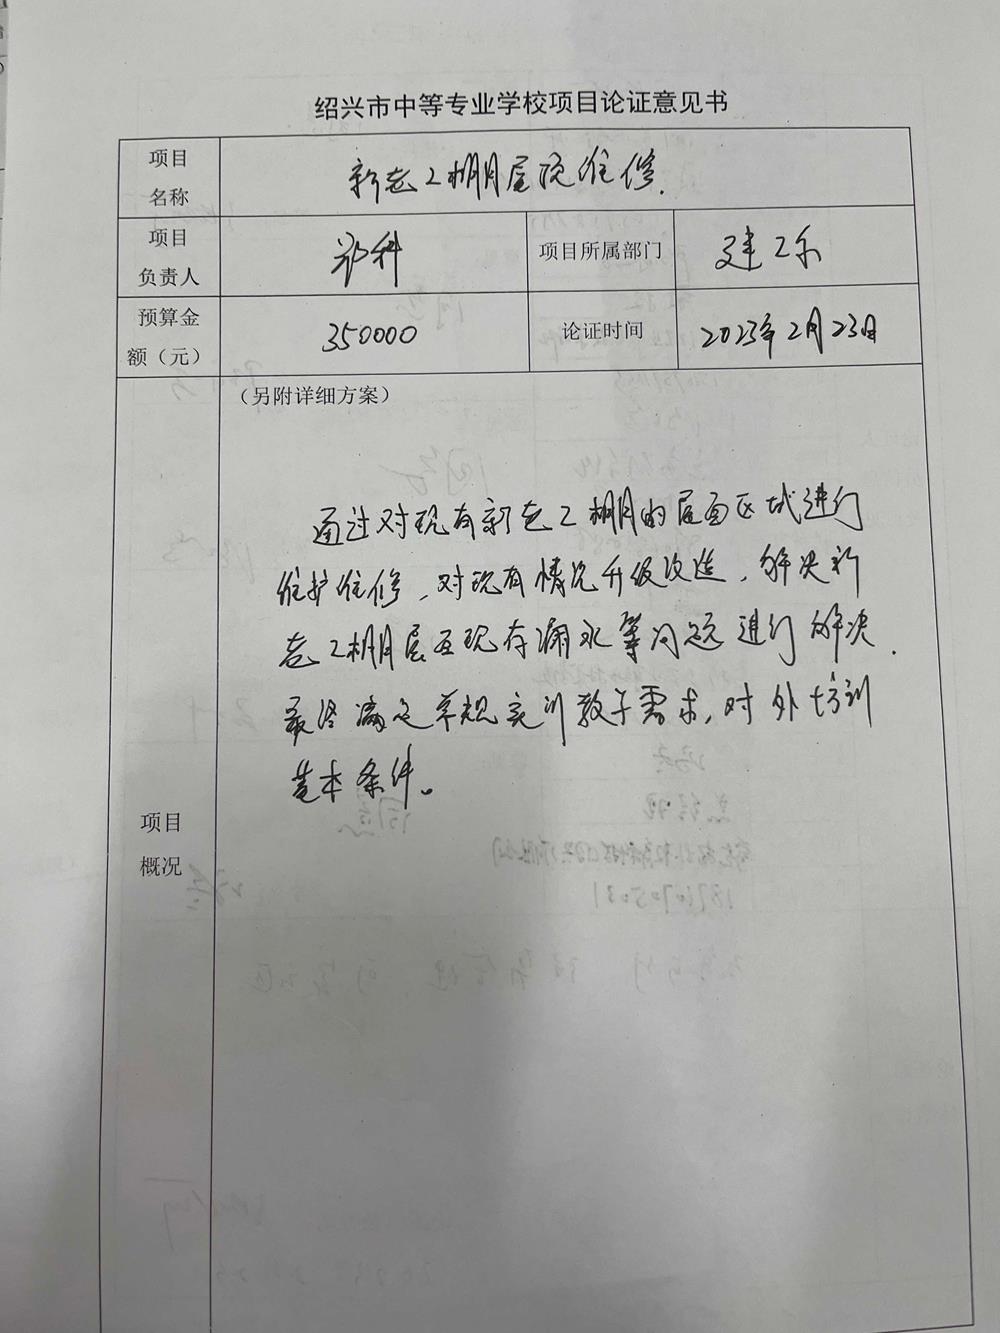 绍兴市中等专业学校项目论证意见书
项目名称 新老工棚屋顶维修.
项目负责人 郑科 项目所属部门 建工部
预算金额（元） 350000 论证时间 2023年2月23日
（另附详细方案）
通过对现有新老工棚的屋面区域进行
维护维修，对现有情况升级改造，解决新
老工棚屋面现存漏水等问题进行解决.
最终满足常规实训教学需求，对外培训
基本条件。
项目概况